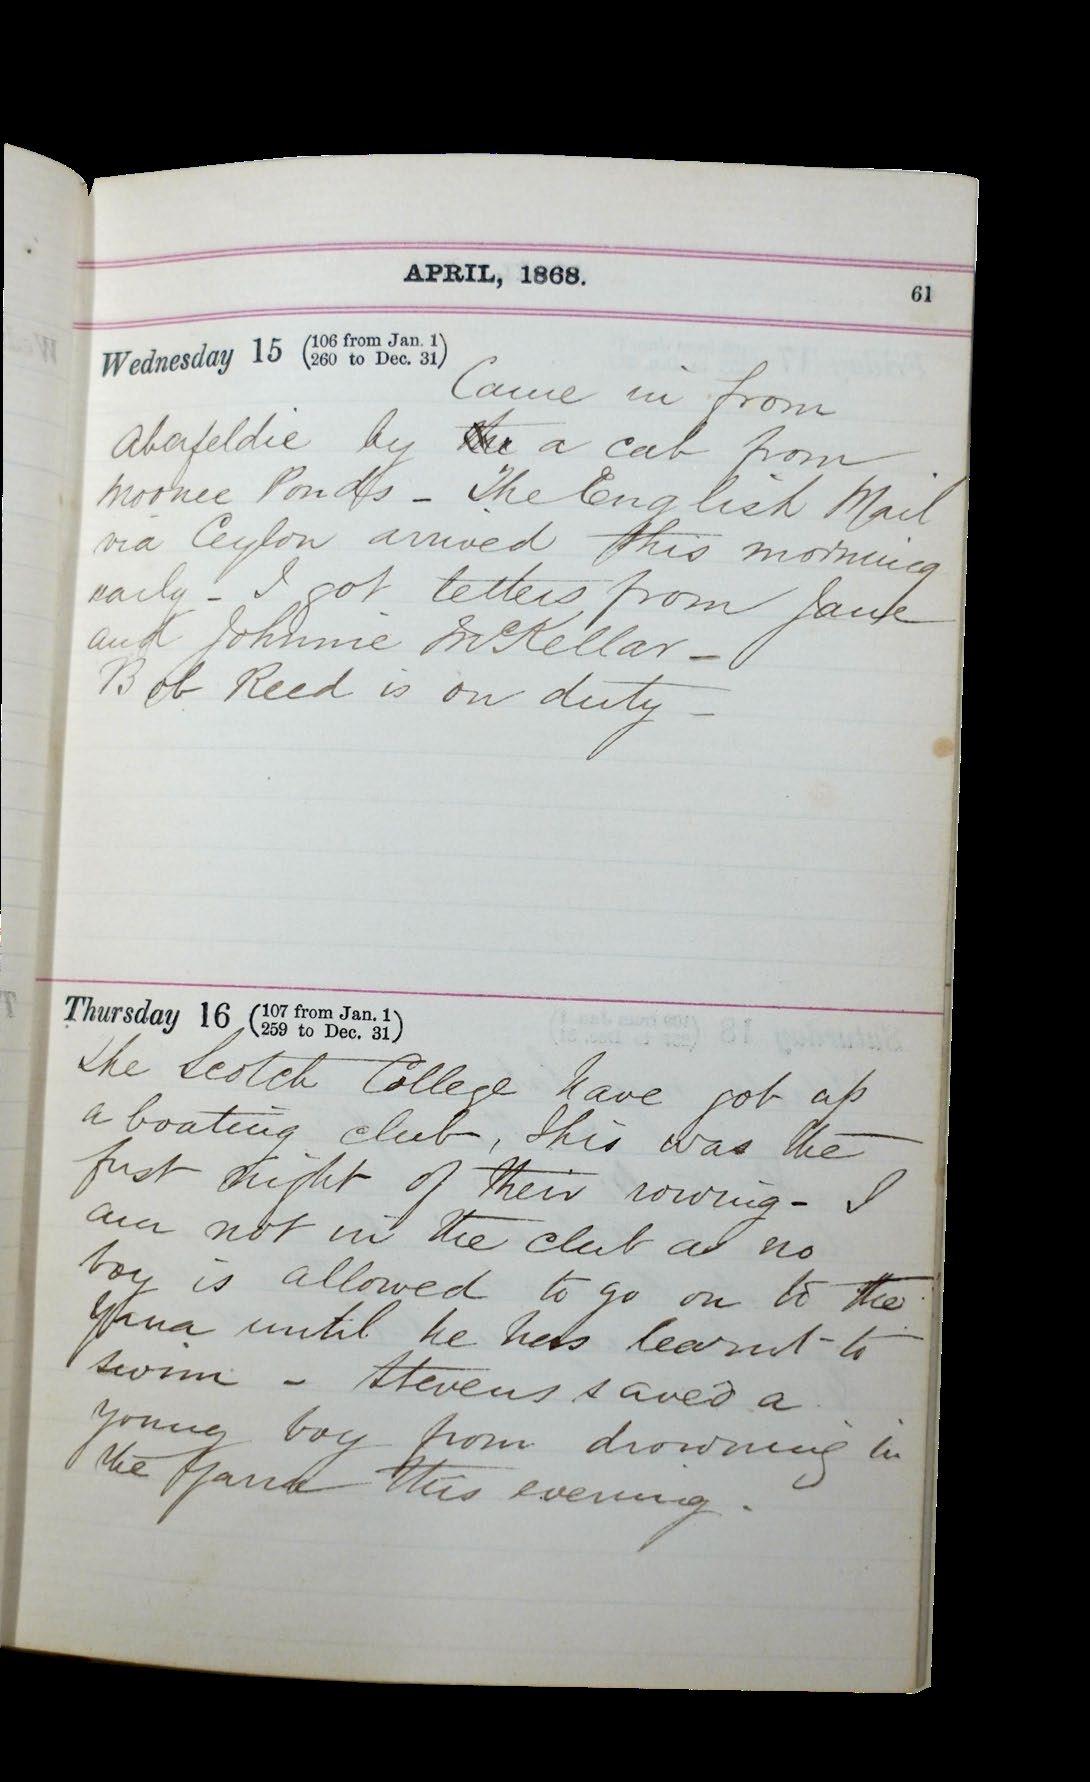 APRIL, 1868.
61
Wednesday 15 (106 from Jan. 1
260 to Dec. 31)
Came in from
Aberfeldie by the a cab from
Moonee Ponds - The English Mail
via Ceylon arrived this morning
early - I got letters from Jane
and Johnnie McKellar -
Bob Reed is on duty -
Thursday 16 (107 from Jan. 1
259 to Dec. 31)
The Scotch College have got up
a boating club, this was the
first night of their rowing - I
am not in the club as no
boy is allowed to go on to the
Yarra until he has learnt to
swim - Stevens saved a
young boy from drowning in
the Yarra this evening.